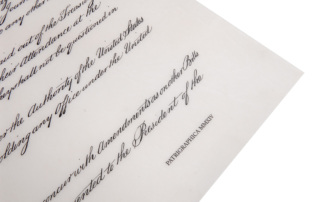 any other
out of the Treasury
Attendance at the
shall not be questioned in
the Authority of the United States
holding any Office under the United
concur with Amendments as on other Bills
presented to the President of the
PATRIOGRAPHICA MMXIV